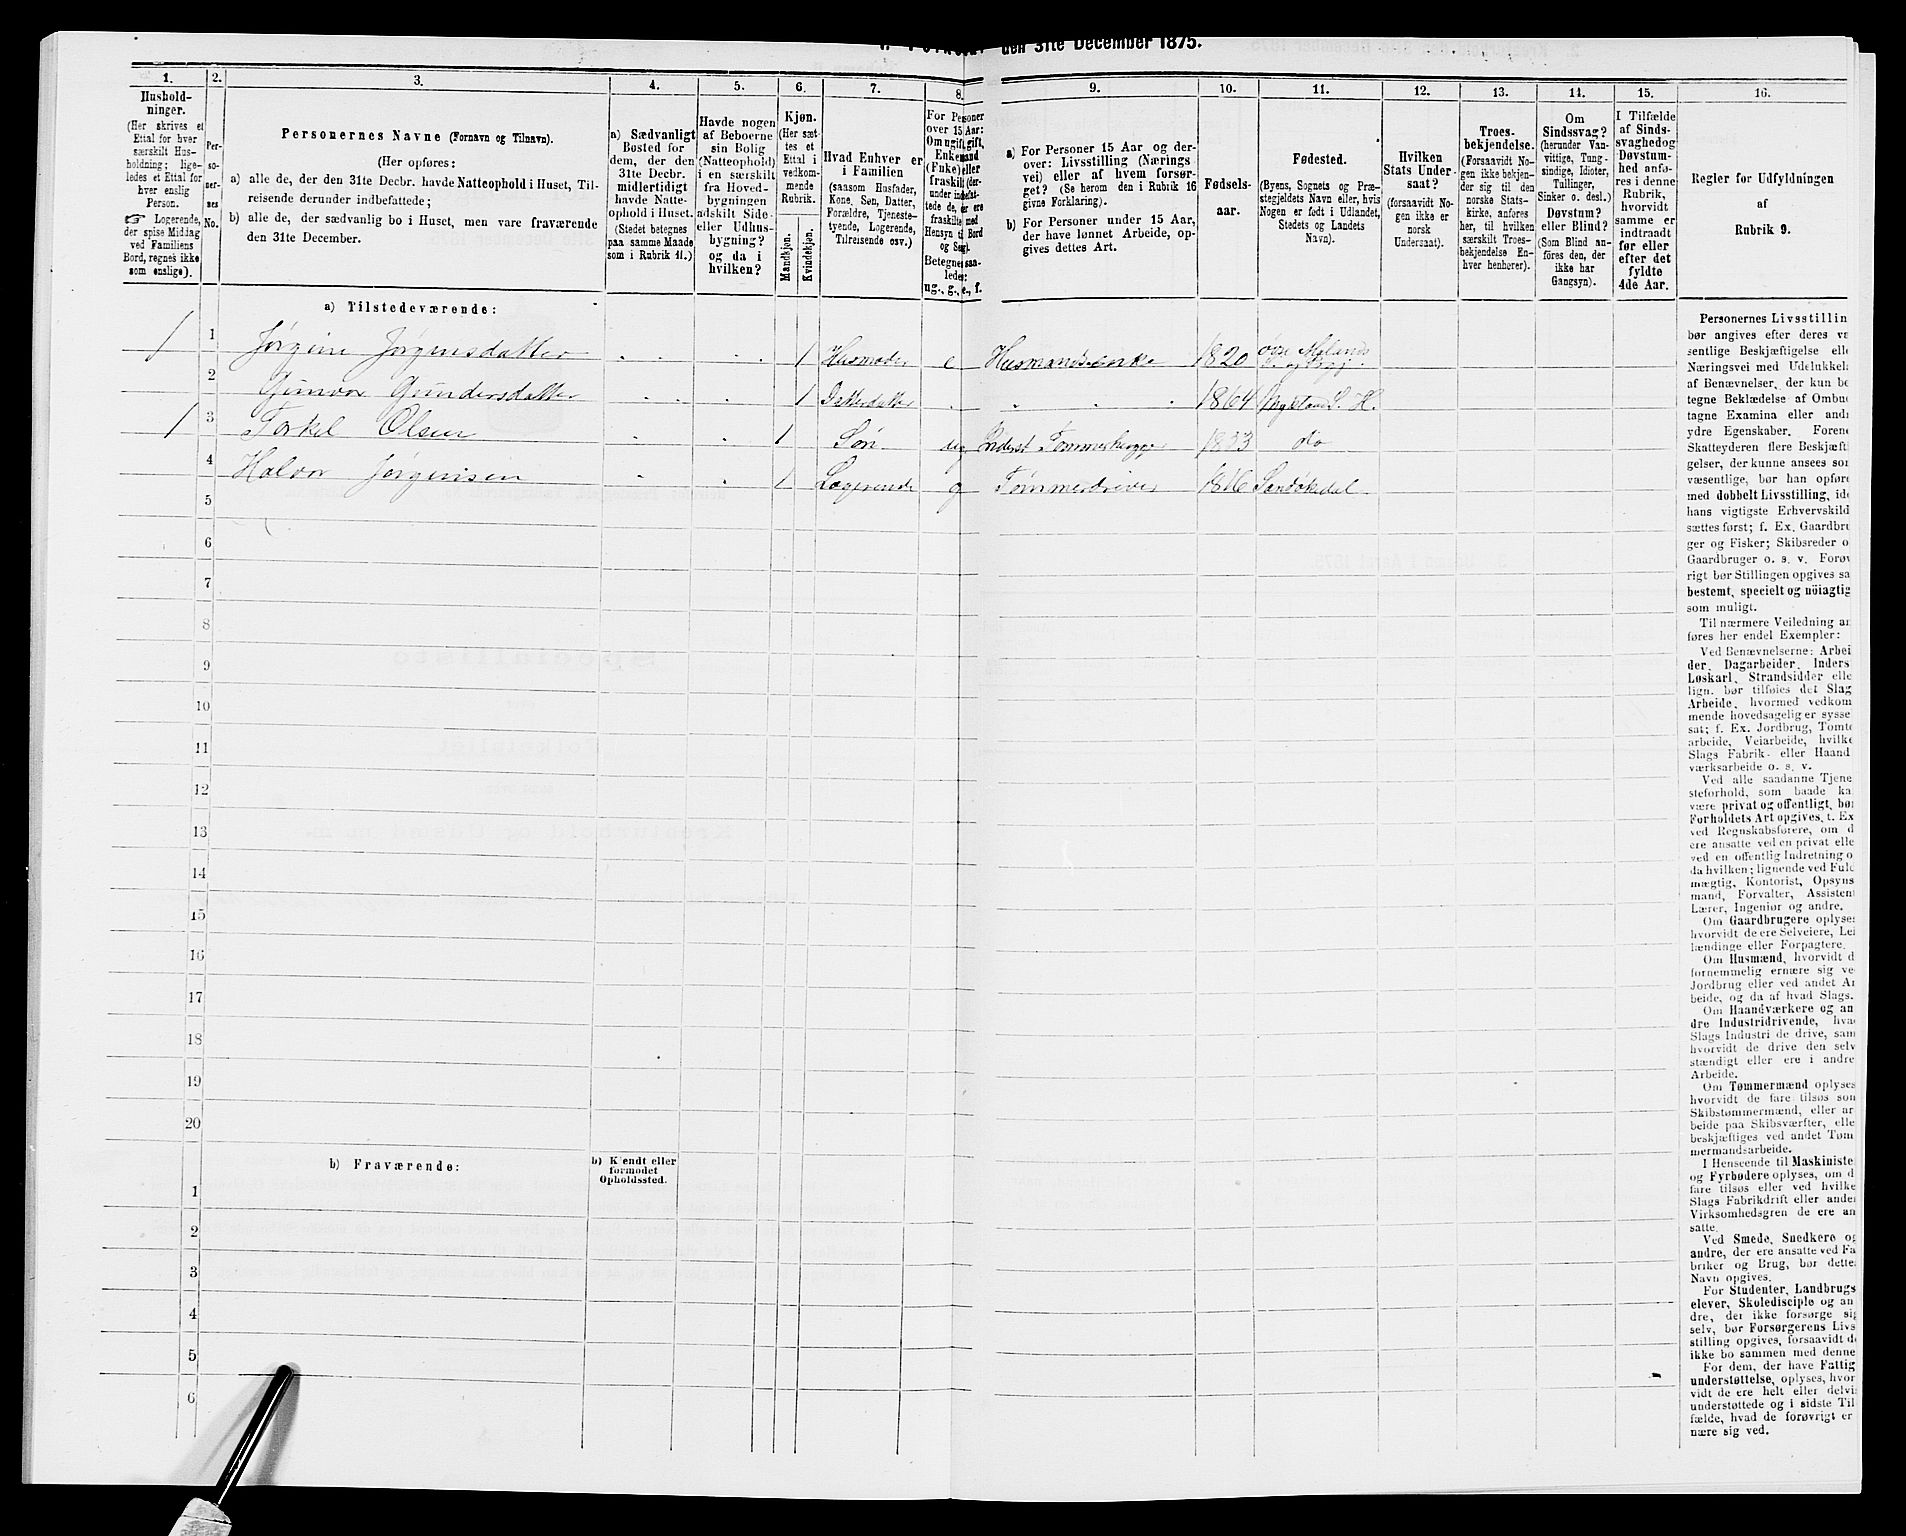 den 31te December 1875.
1.
2.
3.
4.
5.
6.
7.
8.
9.
10.
11.
12.
13.
14.
15.
16.
Hushold-
ninger.
(Her skrives et
Ettal for hver
særskilt Hus-
holdning; lige-
ledes et Ettal for
hver enslig
Person.
☞ Logerende,
der spise Middag
ved Familiens
Bord, regnes ikke
som enslige).
Per-
so-
ner-
nes
No.
Personernes Navne (Fornavn og Tilnavn).
(Her opføres:
a) alle de, der den 31te Decbr. havde Natteophold i Huset, Til-
reisende derunder indbefattede;
b) alle de, der sædvanlig bo i Huset, men vare fraværende
den 31te December.
a) Sædvanligt
Bosted for
dem, der den
31te Decbr.
midlertidigt
havde Natte-
ophold i Huset.
(Stedet betegnes
paa samme Maade
som i Rubrik 11.)
Havde nogen
af Beboerne
sin Bolig
(Natteophold)
i en særskilt
fra Hoved-
bygningen
adskilt Side-
eller Udhus-
bygning?
og da i
hvilken?
Kjøn.
(Her sæt-
tes et
Ettal i
vedkom-
mende
Rubrik.
Mandkjøn.
Kvindekjøn.
Hvad Enhver er
i Familien
(saasom Husfader,
Kone, Søn, Datter,
Forældre, Tjeneste-
tyende, Logerende,
Tilreisende osv.)
For Personer
over 15 Aar:
Om ugift, gift,
Enkemand
(Enke) eller
fraskilt
Hensyn til Bord
og Seng).
Betegnes saa-
ledes:
ug., g., e., f.
a) For Personer 15 Aar og der-
over: Livsstilling (Nærings
vei) eller af hvem forsør-
get? (Se herom den i Rubrik 16
givne Forklaring).
b) For Personer under 15 Aar,
der have lønnet Arbeide, op-
gives dettes Art.
Fødsels-
aar.
Fødested.
(Byens, Sognets og Præ-
stegjeldets Navn eller, hvis
Nogen er født i Udlandet,
Stedets og Landets
Navn).
Hvilken
Stats Under-
saat?
(forsaavidt No-
gen ikke er
norsk
Undersaat).
Troes-
bekjendelse.
(Forsaavidt No-
gen ikke bekjen-
der sig til den
norske Stats-
kirke, anføres
her, til hvilken
særskilt Troes-
bekjendelse En-
hver henhører).
Om
Sindssvag?
(herunder Van-
vittige, Tung-
sindige, Idioter,
Tullinger,
Sinker o. desl.)
Døvstum?
eller Blind?
(Som Blind an-
føres den, der
ikke har
Gangsyn).
I Tilfælde
af Sinds-
svaghed og
Døvstum-
hed anfø-
res i denne
Rubrik,
hvorvidt
samme er
indtraadt
før eller
efter det
fyldte
4de Aar.
Regler for Udfyldningen
af
Rubrik 9.
a) Tilstedeværende:
1 1 Jørgine Jørgensdatter 1 Husmoder e Husmandsenke 1820
2 Gunvor Gundersdatter 1 Datterdatter 1864
1 3 Torkel Olsen 1 Søn ug Tømmerhugger do
4 Halvor Jørgensen 1 Logerende g Tømmerdriver Sandøkedal
5
6
7
8
9
10
11
12
13
14
15
16
17
18
19
20
b) Fraværende:
b) Kjendt eller
formodet
Opholdssted.
1
2
3
4
5
6
Personernes Livsstillin
bør angives efter deres væ
sentlige Beskjæftigelse elle
Næringsvei med Udelukkels
af Benævnelser, der kun be
tegne Beklædelse af Ombu
tagne Examina eller andr
ydre Egenskaber. Forene
Skatteyderen flere Beskjæft
gelser, der kunne ansees som
væsentlige, bør han opføre
med dobbelt Livsstilling, ide
hans vigtigste Erhvervskild
sættes først; f. Ex. Gaardbru
ger og Fisker; Skibsreder o
Gaardbruger o. s. v. Forøv
rigt bør Stillingen opgives sa
bestemt, specielt og nöiagtig
som muligt.
Til nærmere Veiledning an
føres her endel Exempler:
Ved Benævnelserne: Arbei
der, Dagarbeider, Inders
Løskarl, Strandsidder elle
lign. bør tilføies det Slag
Arbeide, hvormed vedkom
mende hovedsagelig er syssel
sat; f. Ex. Jordbrug, Tomte
arbeide, Veiarbeide, hvilke
Slags Fabrik- eller Haand
værksarbeide o. s. v.
Ved alle saadanne Tjene
steforhold, som baade ka
være privat og offentligt, bør
Forholdets Art opgives, t. Ex
ved Regnskabsførere, om d
ere ansatte ved en privat elle
ved en offentlig Indretning o
da hvilken; lignende ved Fuld
mægtig, Kontorist, Opsyns
mand, Forvalter, Assistent
Lærer, Ingeniør og andre.
Om Gaardbrugere oplyses
hvorvidt de ere Selveiere, Lei
lændinge eller Forpagtere.
Om Husmænd, hvorvidt d
fornemmelig ernære sig ve
Jordbrug eller ved andet Ar
beide, og da af hvad Slags.
Om Haandværkere og an
dre Industridrivende, hvad
Slags Industri de drive, sam
hvorvidt de drive den selv
stændigt eller ere i andre
Arbeide.
Om Tømmermænd oplyses
hvorvidt de fare tilsøs som
Skibstømmermænd, eller ar
beide paa Skibsværfter, elle
beskjæftiges ved andet Tøm
mermandsarbeide.
I Henseende til Maskiniste
og Fyrbødere oplyses, om d
fare tilsøs eller ved hvilke
Slags Fabrikdrift eller anden
Virksomhedsgren de ere an
satte.
Ved Smede, Snedkere og
andre, der ere ansatte ved Fa
briker og Brug, bør dette
Navn opgives.
For Studenter, Landbrugs
elever, Skoledisciple og an
dre, der ikke forsørge sig
selv, bør Forsørgerens Livs
stilling opgives, forsaavidt de
ikke bo sammen med denne
For dem, der have Fattig
understøttelse, oplyses, hvor
vidt de ere helt eller delvis
understøttede og i sidste Til
fælde, hvad de forøvrigt er
nære sig ved.